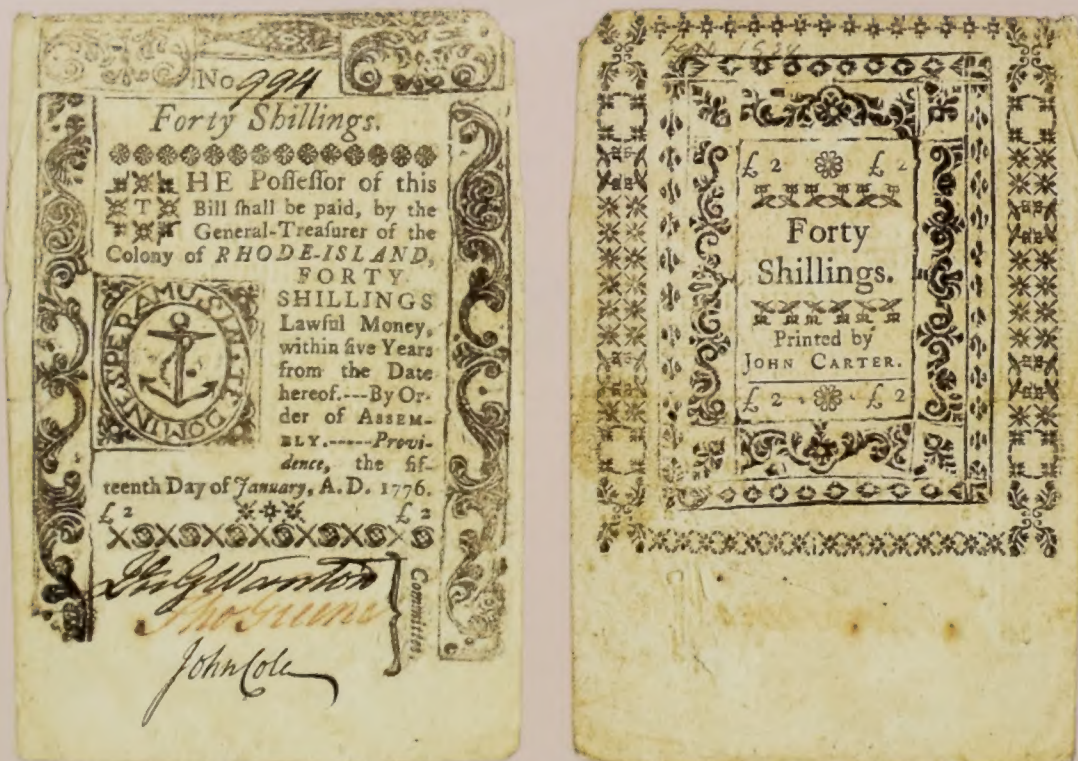 No 994
Forty Shillings.
THE Poſſeſſor of this
Bill ſhall be paid, by the
General-Treaſurer of the
Colony of RHODE-ISLAND,
FORTY
SHILLINGS
Lawful Money,
within five Years
from the Date
hereof.---By Or-
der of ASSEM-
BLY.-----Provi-
dence, the fif-
teenth Day of January, A.D. 1776.
£ 2 £ 2
IN·TE·DOMINE·SPERAMUS·
JnoGWanton
ThoGreene
John Cole
Committee.
£ 2 £ 2
Forty
Shillings.
Printed by
JOHN CARTER.
£ 2 £ 2